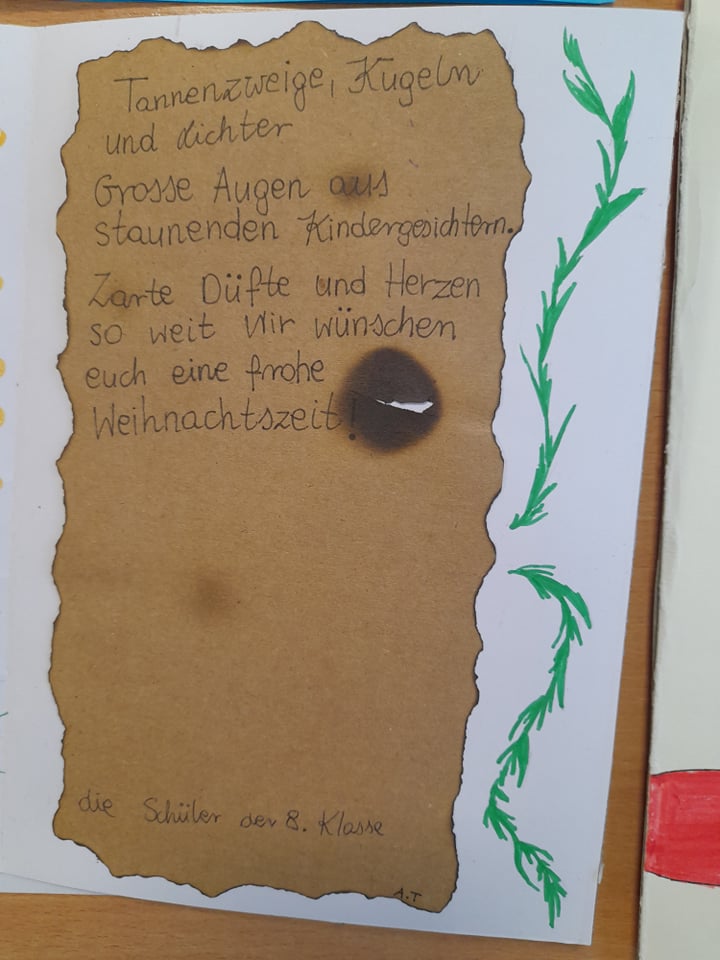 Tannenzweige, Kugeln
und Lichter
Grosse Augen aus
staunenden Kindergesichtern.
Zarte Düfte und Herzen
so weit Wir wünschen
euch eine frohe
Weihnachtszeit!
die Schüler der 8. Klasse
A.T